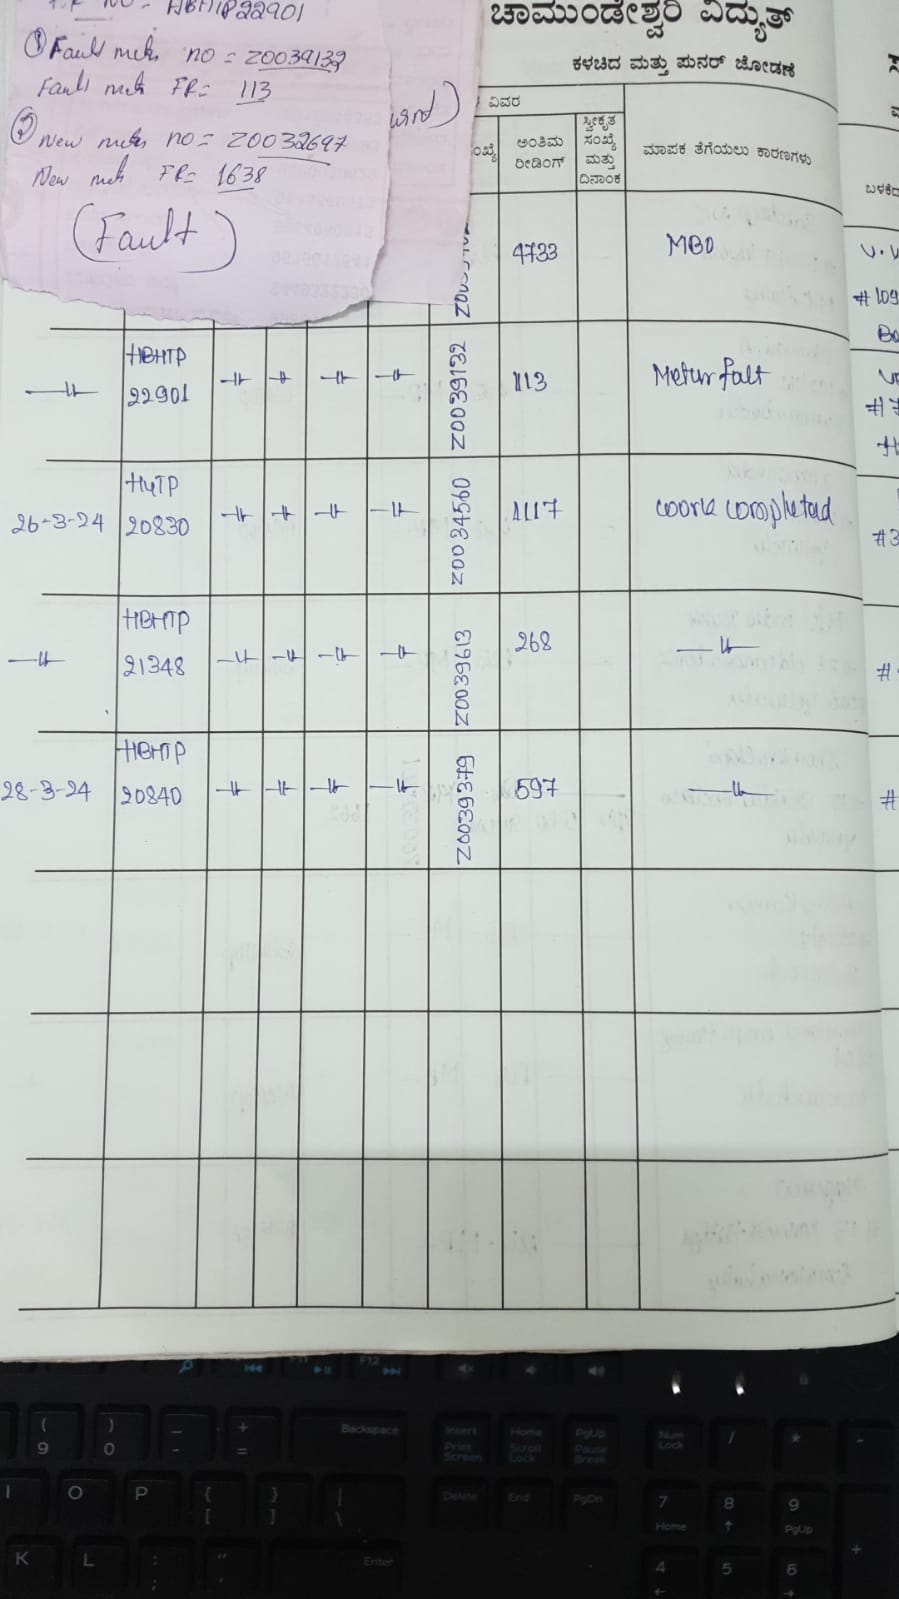 HBHTP22901
① Fault meter no = Z0039132
Fault meter FR = 113
② New meter no = Z0032697
New meter FR = 1638
(Fault)
ಚಾಮುಂಡೇಶ್ವರಿ ವಿದ್ಯುತ್
ಕಳಚಿದ ಮತ್ತು ಪುನರ್ ಜೋಡಣೆ
ವಿವರ
ಅಂತಿಮ ರೀಡಿಂಗ್
ಸ್ವೀಕೃತ ಸಂಖ್ಯೆ ಮತ್ತು ದಿನಾಂಕ
ಮಾಪಕ ತೆಗೆಯಲು ಕಾರಣಗಳು
4733 MBD
# 109
HBHTP 22901 Z0039132 113 Metur falt
26-3-24 HYTP 20830 Z0034560 1117 coork completad
#3
HBHTP 21348 Z0039613 268
#
28-3-24 HBHTP 20840 Z0039379 597
#
F12
( 9
) 0
_ -
+ =
Backspace
Insert
Print Screen
Home
Scroll Lock
PgUp
Pause Break
Num Lock
/
*
-
I
O
P
{ [
} ]
| \
Delete
End
PgDn
7 Home
8
9 PgUp
+
K
L
: ;
" '
Enter
4
5
6